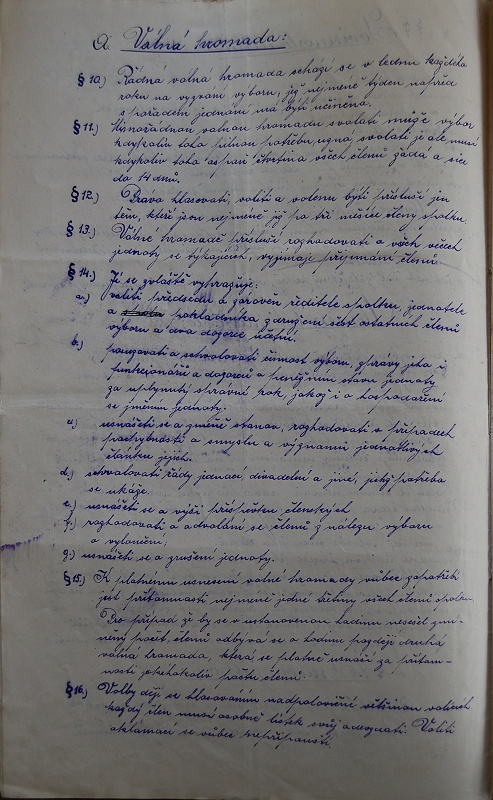 A. Valná hromada:
§ 10.) Řádná valná hromada schází se v lednu každého
roku na vyzvání výboru, jež nejméně týden napřed
s pořadem jednání má býti učiněna.
§ 11.) Mimořádnou valnou hromadu svolati může výbor
kdykoliv toho pilnou potřebu uzná, svolati je ale musí
kdykoliv toho aspoň čtvrtina všech členů žádá a sice
do 14 dnů.
§ 12.) Právo hlasovati, voliti a volenu býti přísluší jen
těm, kteří jsou nejméně již po tři měsíce členy spolku.
§ 13.) Valné hromadě přísluší rozhodovati o všech věcech
jednoty se týkajících, vyjímaje přijímání členů.
§ 14.) Jí se zvláště vyhrazuje:
a.) voliti předsedu a zároveň ředitele spolku, jednatele
a pokladníka združení šest ostatních členů
výboru a dva dozorce účetní.
b.) posuzovati a schvalovati činnost výboru, zprávy jeho i
funkcionářů a dozorců o peněžním stavu jednoty
za uplynutý správní rok, jakož i o hospodaření
se jměním jednoty.
usnášeti se o změně stanov, rozhodovati v případech
pochybností o smyslu a významu jednotlivých
článků jejich.
d.) schvalovati řády jednací divadelní a jiné, jichž potřeba
se ukáže.
e.) usnášeti se o výši příspěvku členských
f.) rozhodovati o odvolání se členů z nálezu výboru
o vyloučení.
g.) usnášeti se o zrušení jednoty.
§ 15.) K platnému usnesení valné hromady vůbec zapotřebí
jest přítomnosti nejméně jedné třetiny všech členů spolku.
Pro případ že by se v ustanovenou hodinu nesešel zmí-
něný počet členů odbývá se o hodinu později druhá
valná hromada, která se platně usnáší za přítom-
nosti jakéhokoliv počtu členů.
§ 16.) Volby dějí se hlasováním nadpoloviční většinou volících
každý člen musí osobně lístek svůj odevzdati. Voliti
aklamací se vůbec nepřipouští.